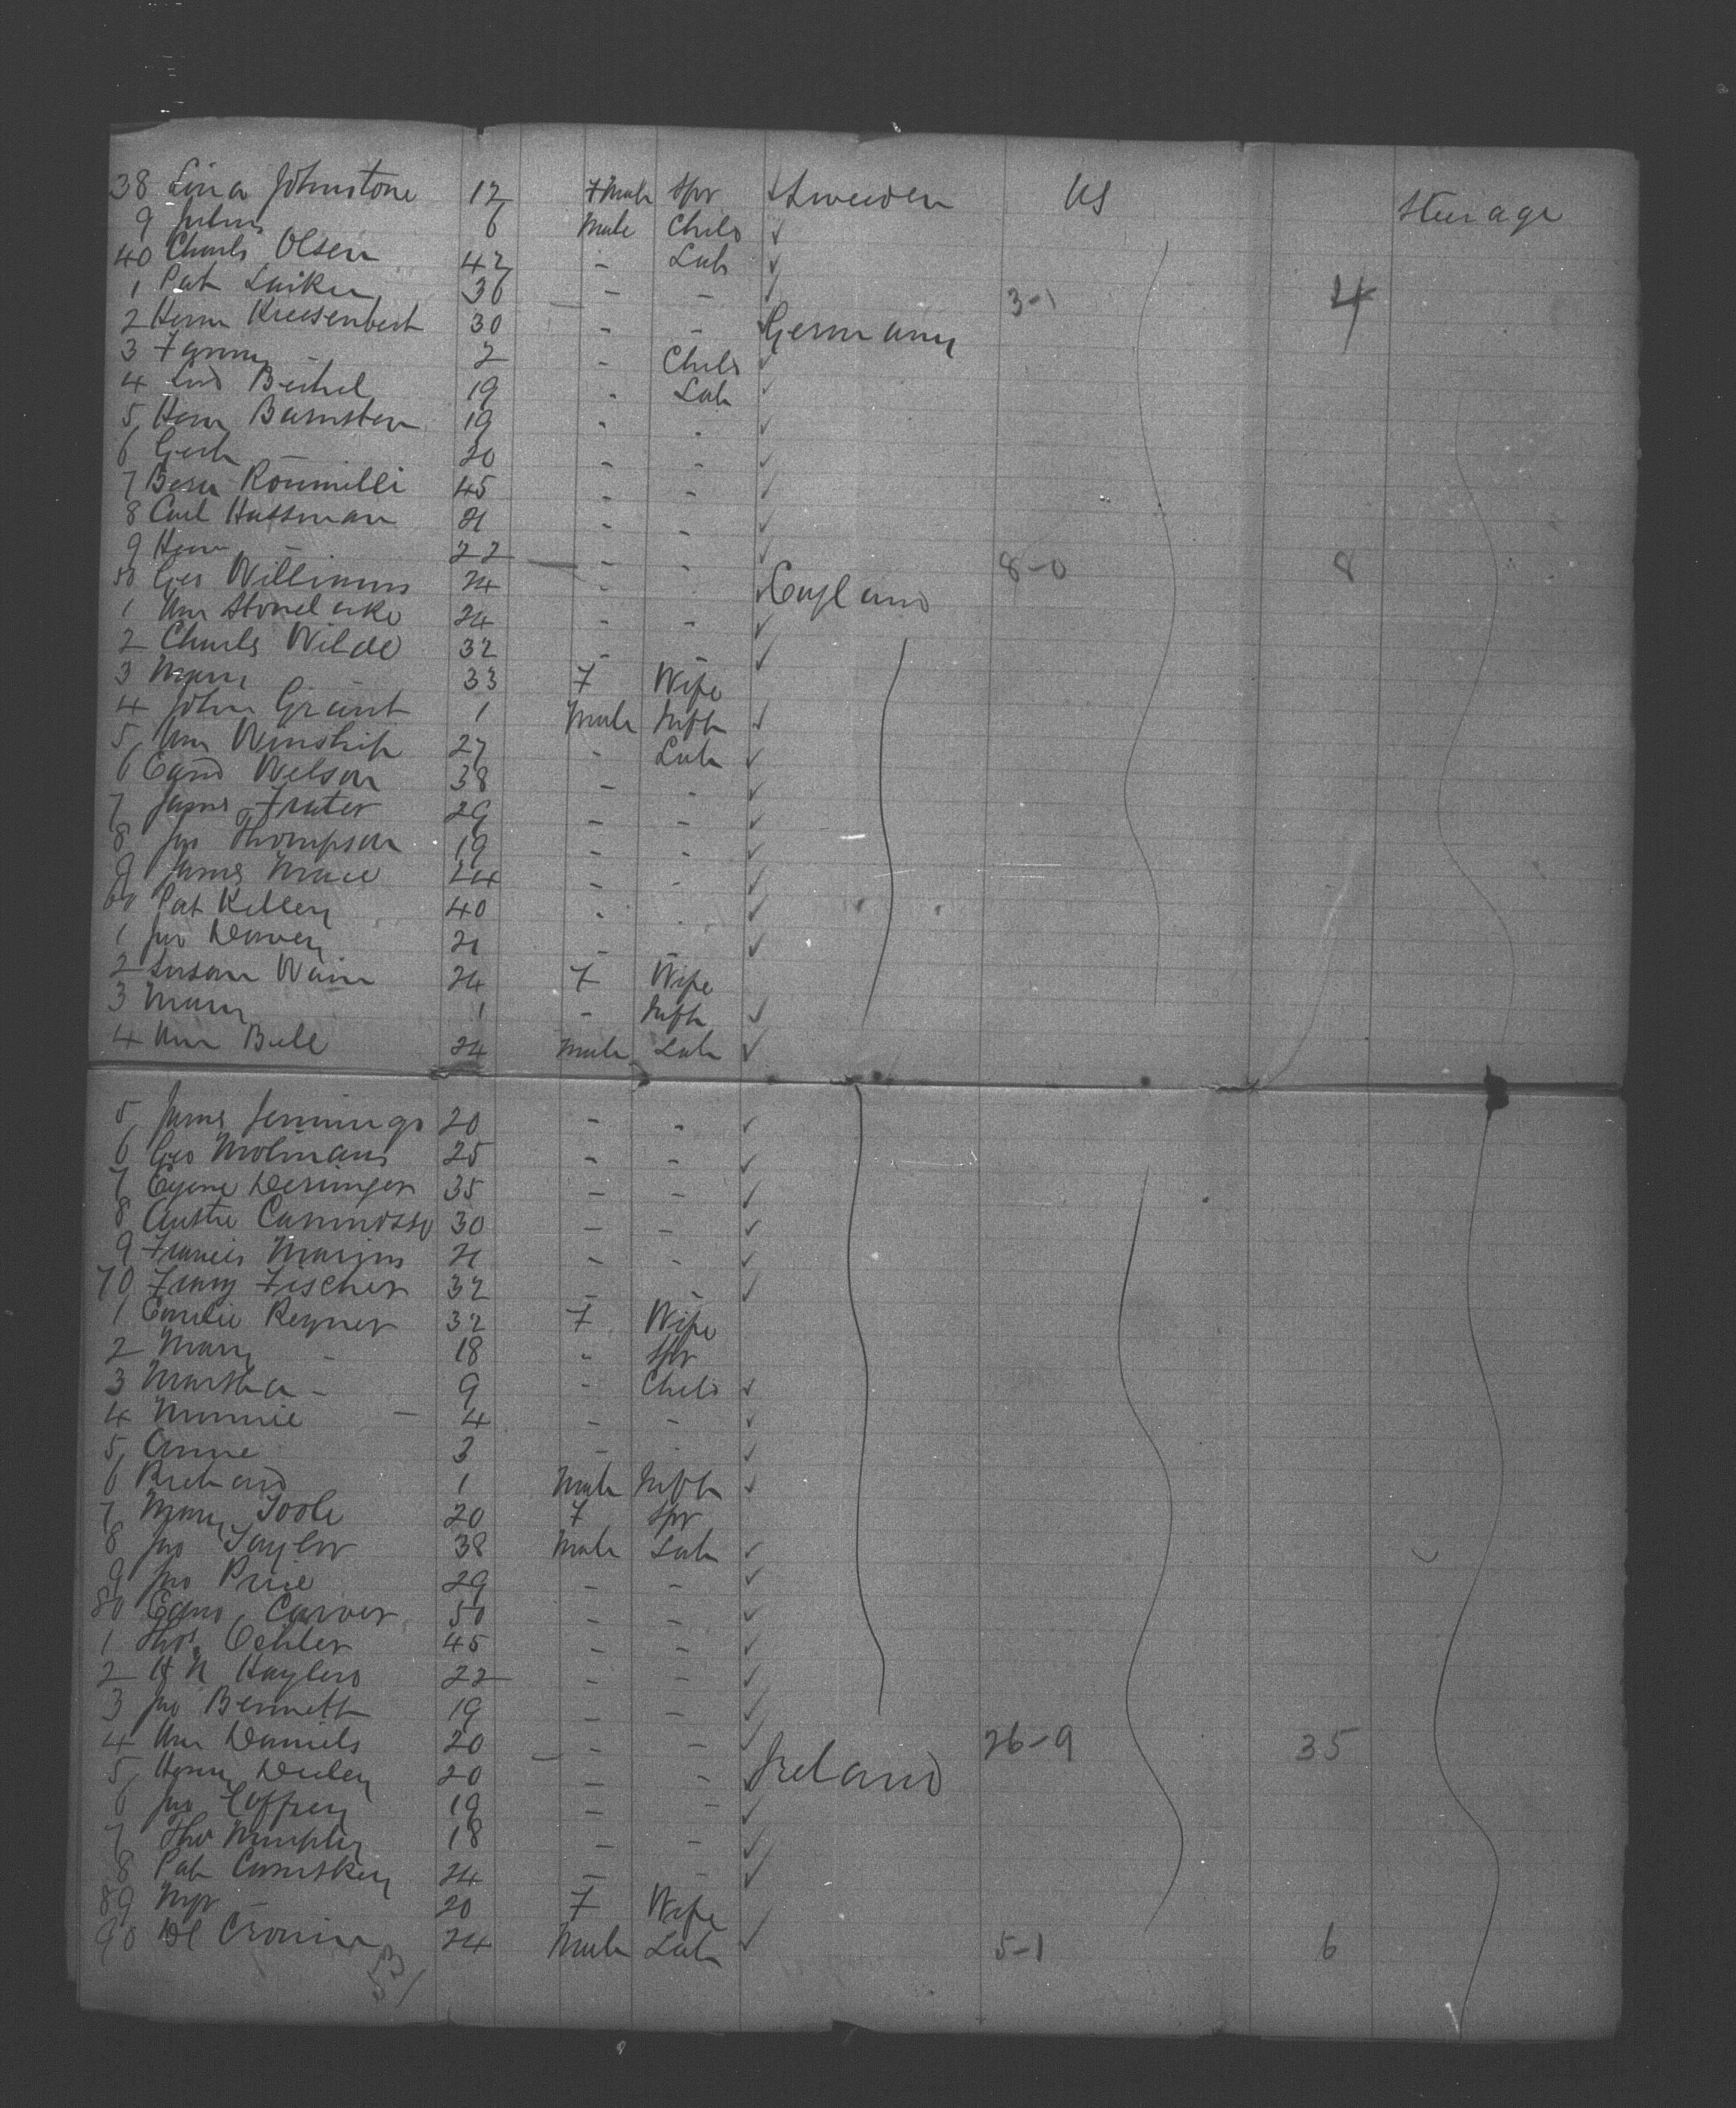 38 Lina Johnstone 12 Fmale Spr Sweeden US Steerage
9 Julius 6 Male Child ✓
40 Charls Olsen 42 - Lab ✓
1 Pat 36 - - ✓ 3-1 4
2 Herm 30 - - Germany
3 Fanny - 2 - Child ✓
4 Bechel 19 - Lab ✓
5 Herm 19 - - ✓
6 - 20 - - ✓
7 45 - - ✓
8 Carl Hassman 21 - - ✓
9 Herm - 22 - - ✓ 8-0 8
50 Geo Williams 24 - - England
1 Wm 24 - - ✓
2 Charls Wilde 32 - - ✓
3 Mary - 33 F Wife
4 John Grant 1 Male Inft ✓
5 Wm Winship 27 - Lab ✓
6 Edwd Welson 38 - - ✓
7 James Frater 29 - - ✓
8 Jno Thompson 19 - - ✓
9 James 24 - - ✓
60 Pat Killey 40 - - ✓
1 Jno 21 - - ✓
2 Susan Wain 24 F Wife
3 Mary 1 - Inft ✓
4 Wm Bell 24 Male Lab ✓
5 James Jennings 20 - - ✓
6 Geo 25 - - ✓
7 35 - - ✓
8 30 - - ✓
9 Francis 21 - - ✓
70 Franz Fischer 32 - - ✓
1 Emilie Reyner 32 F Wife
2 Mary - 18 - Spr
3 Martha - 9 - Child ✓
4 Minnie - 4 - - ✓
5 Anne 3 - - ✓
6 Richard 1 Male Inft ✓
7 Mary Toole 20 F Spr
8 Jno Taylor 38 Male Lab ✓
9 Jno Price 29 - - ✓
80 Carver 50 - - ✓
1 Thos Oehler 45 - - ✓
2 22 - - ✓
3 Jno Bennett 19 - - ✓
4 Wm Daniels 20 - - ✓ 26-9 35
5 Henry 20 - - Ireland
6 Jno 19 - - ✓
7 Tho 18 - - ✓
8 Pat 24 - - ✓
89 Mrs - 20 F Wife
90 Dl Cronin 24 Male Lab ✓ 5-1 6
53/